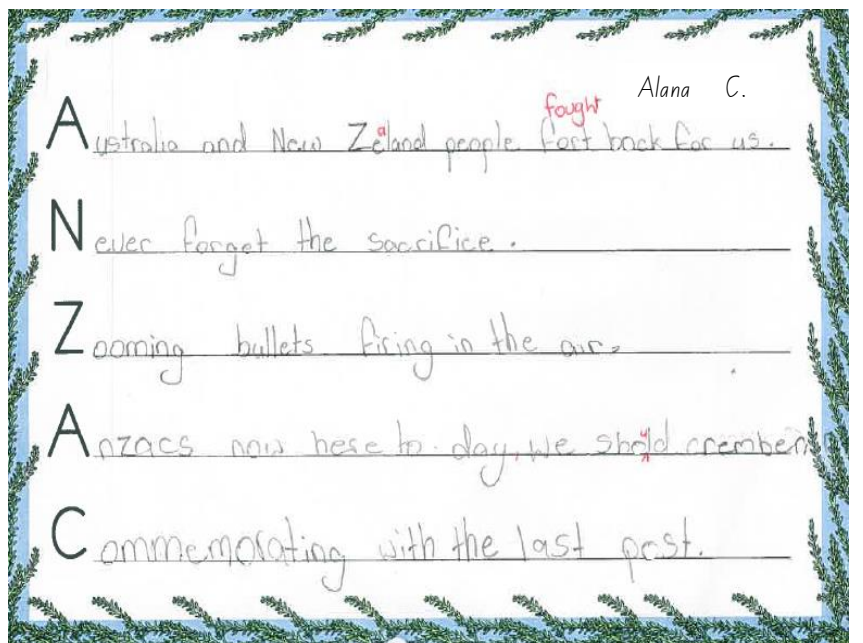 Alana C.
fought
Australia and New Zealand people fort back for us.
Never forget the sacrifice.
Zooming bullets firing in the air.
Anzacs now here to day, we should
Commemorating with the last post.